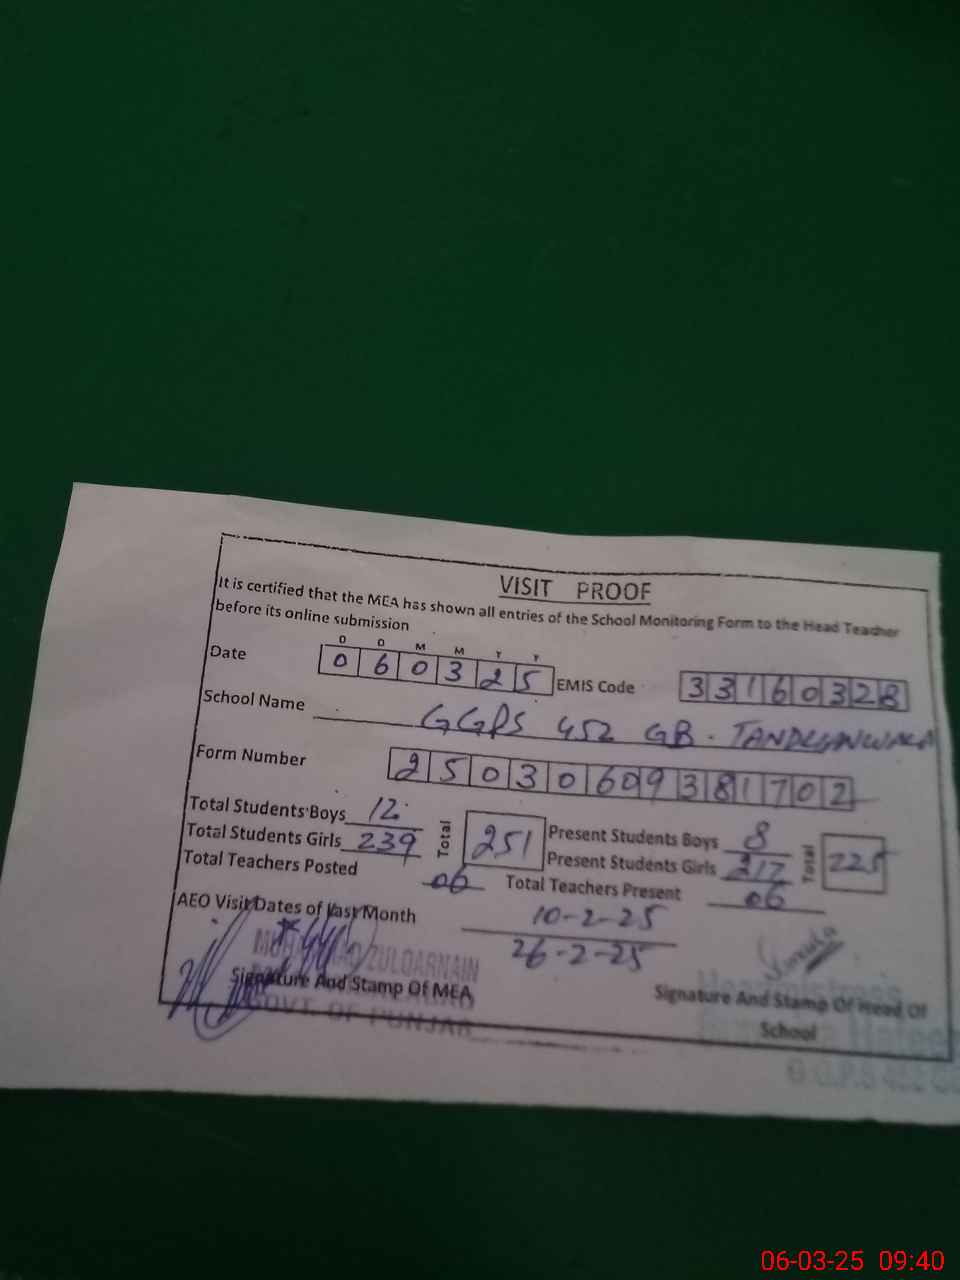 VISIT PROOF
It is certified that the MEA has shown all entries of the School Monitoring Form to the Head Teacher
before its online submission
D D M M Y Y
Date 0 6 0 3 2 5 EMIS Code 3 3 1 6 0 3 2 8
School Name GGPS 452 GB. TANDLIANWALA
Form Number 2 5 0 3 0 6 0 9 3 8 1 7 0 2
Total Students Boys 12 Total 251 Present Students Boys 8 Total 225
Total Students Girls 239 Present Students Girls 217
Total Teachers Posted 06 Total Teachers Present 06
AEO Visit Dates of Last Month 10-2-25
26-2-25
MUHAMMAD ZULQARNAIN
Signature And Stamp Of MEA
GOVT. OF PUNJAB
Headmistress
Signature And Stamp Of Head Of
School
G.G.P.S 452 G
06-03-25 09:40